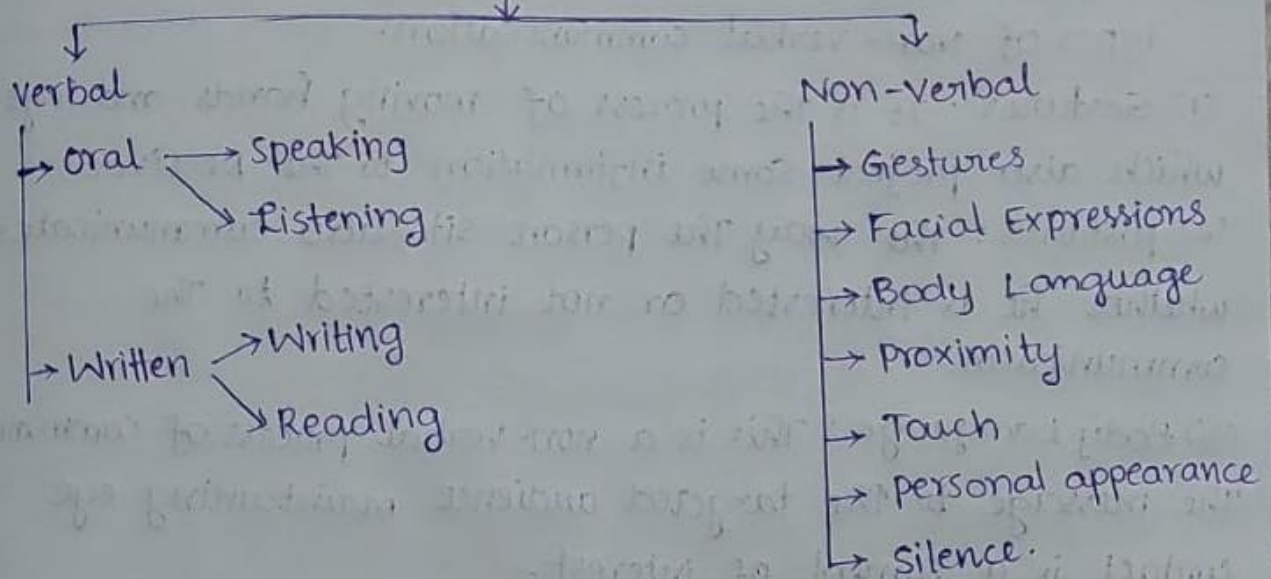 verbal
Non-verbal
→ oral → Speaking
→ Listening
→ Written → Writing
→ Reading
→ Gestures
→ Facial Expressions
→ Body Language
→ proximity
→ Touch
→ personal appearance
→ silence.